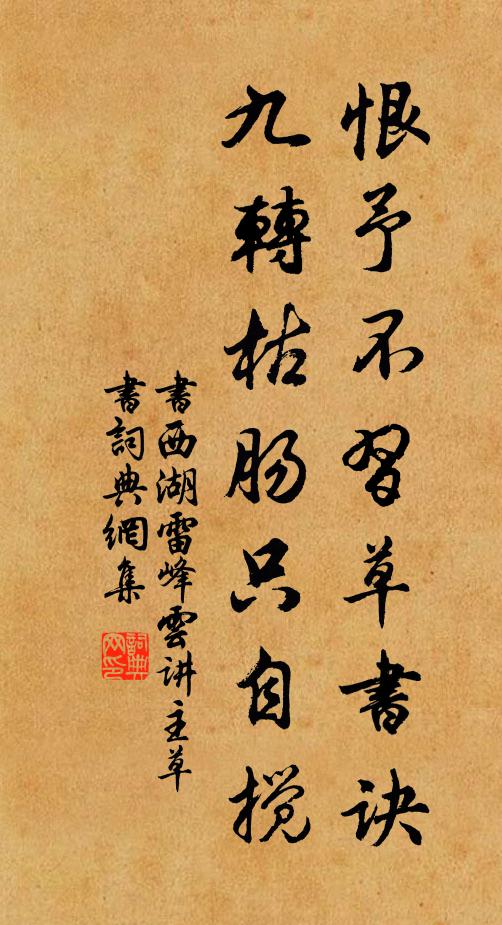 恨予不習草書訣
九轉枯肠只自搅
書西湖雷峰雲讲主草
書詞典網集
詞典网印